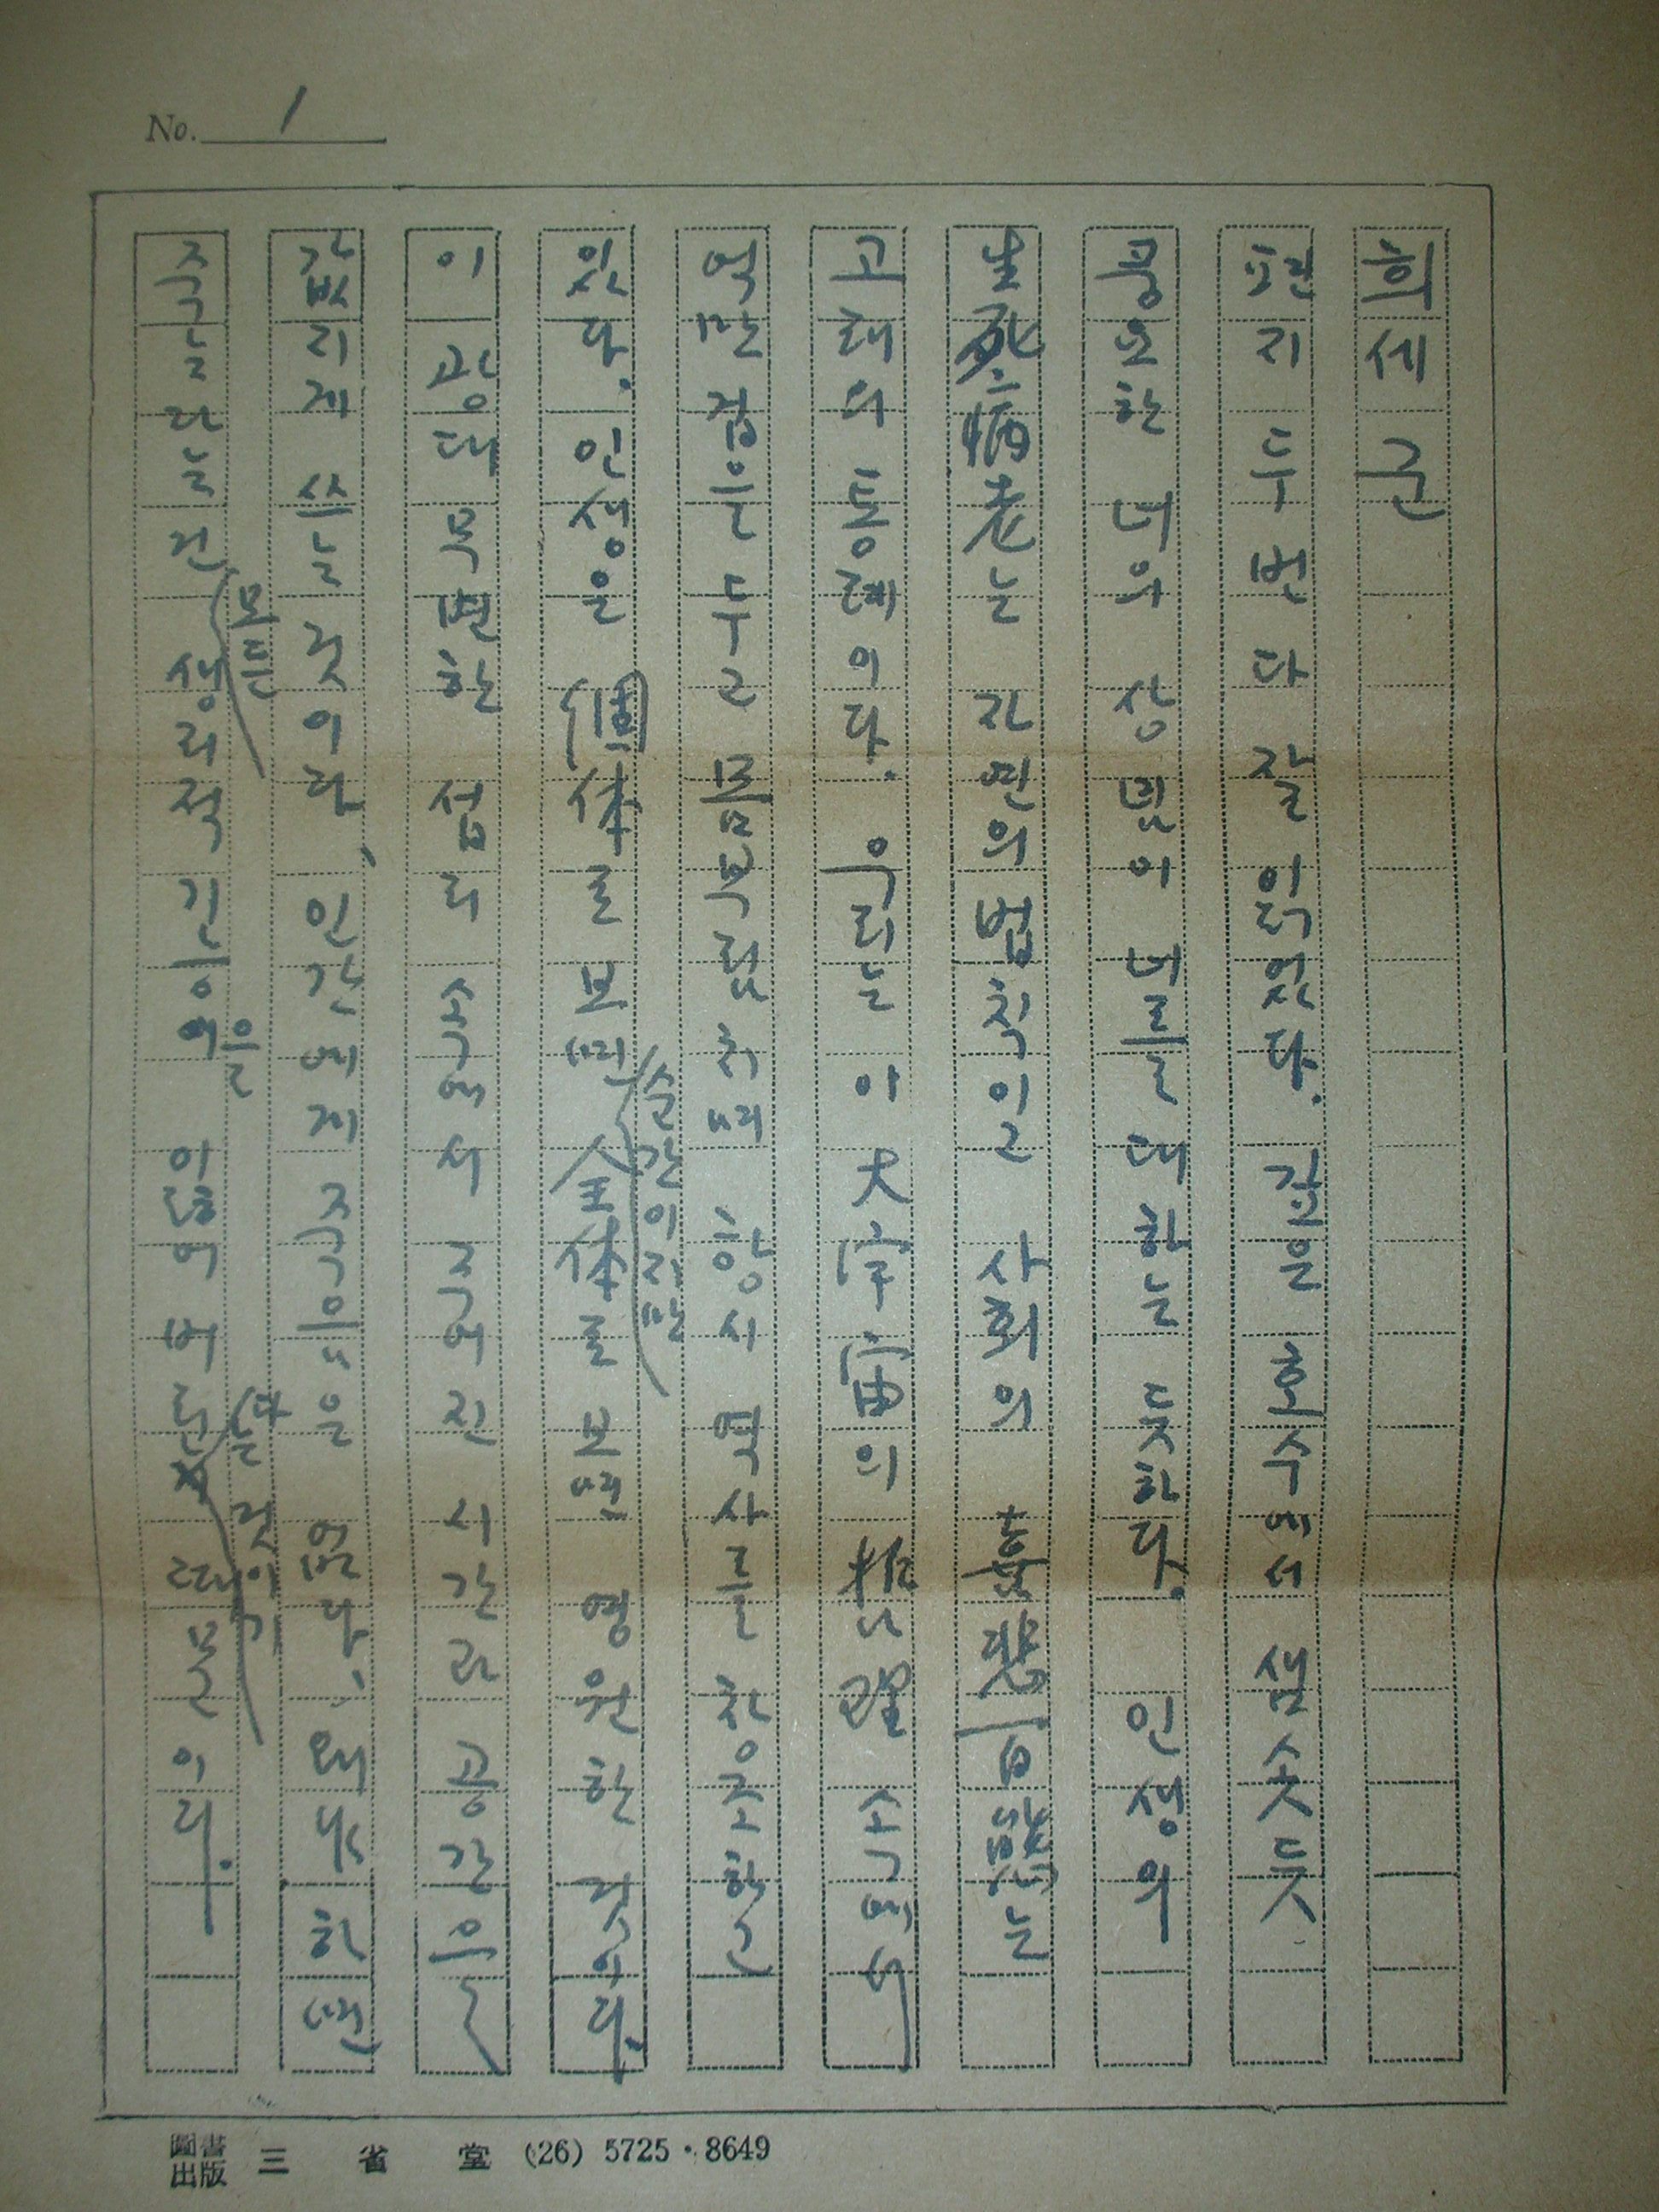 No. 1
희세군
편지 두번 다 잘 읽었다. 깊은 호수에서 샘솟듯
풍요한 너의 상념이 너를 대하는 듯하다. 인생의
生死病老는 자연의 법칙이고 사회의 喜悲哀惱는
고래의 통례이다. 우리는 아 大宇宙의 섭리 속에서
억만 겁을 두고 몸부림치며 항시 역사를 창조한
있다. 인생은 個体로 보면 순간이지만 全体로 보면 영원한 것이다.
이 광대 무변한 섭리 속에서 주어진 시간과 공간을
값 리게 쓰는 것이라, 인간에게 죽음은 없다, 왜냐 하면
죽는다는 건 모든 생리적 기능을 잃어버린다는 것이기 때문이리.
圖書出版 三省堂 (26) 5725・8649